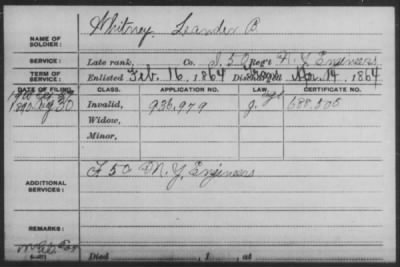 NAME OF SOLDIER: Whitney, Leander B
SERVICE: Late rank, Co. I, 50 Reg't N.Y. Engineers
TERM OF SERVICE: Enlisted Feb. 16, 1864 Discharged 14, 1864
DATE OF FILING. CLASS. APPLICATION NO. LAW. CERTIFICATE NO.
1890 Aug 30 Invalid, 936,979 688,505
Widow,
Minor,
ADDITIONAL SERVICES: F 50 N.Y. Engineers
REMARKS:
Died , 1 , at